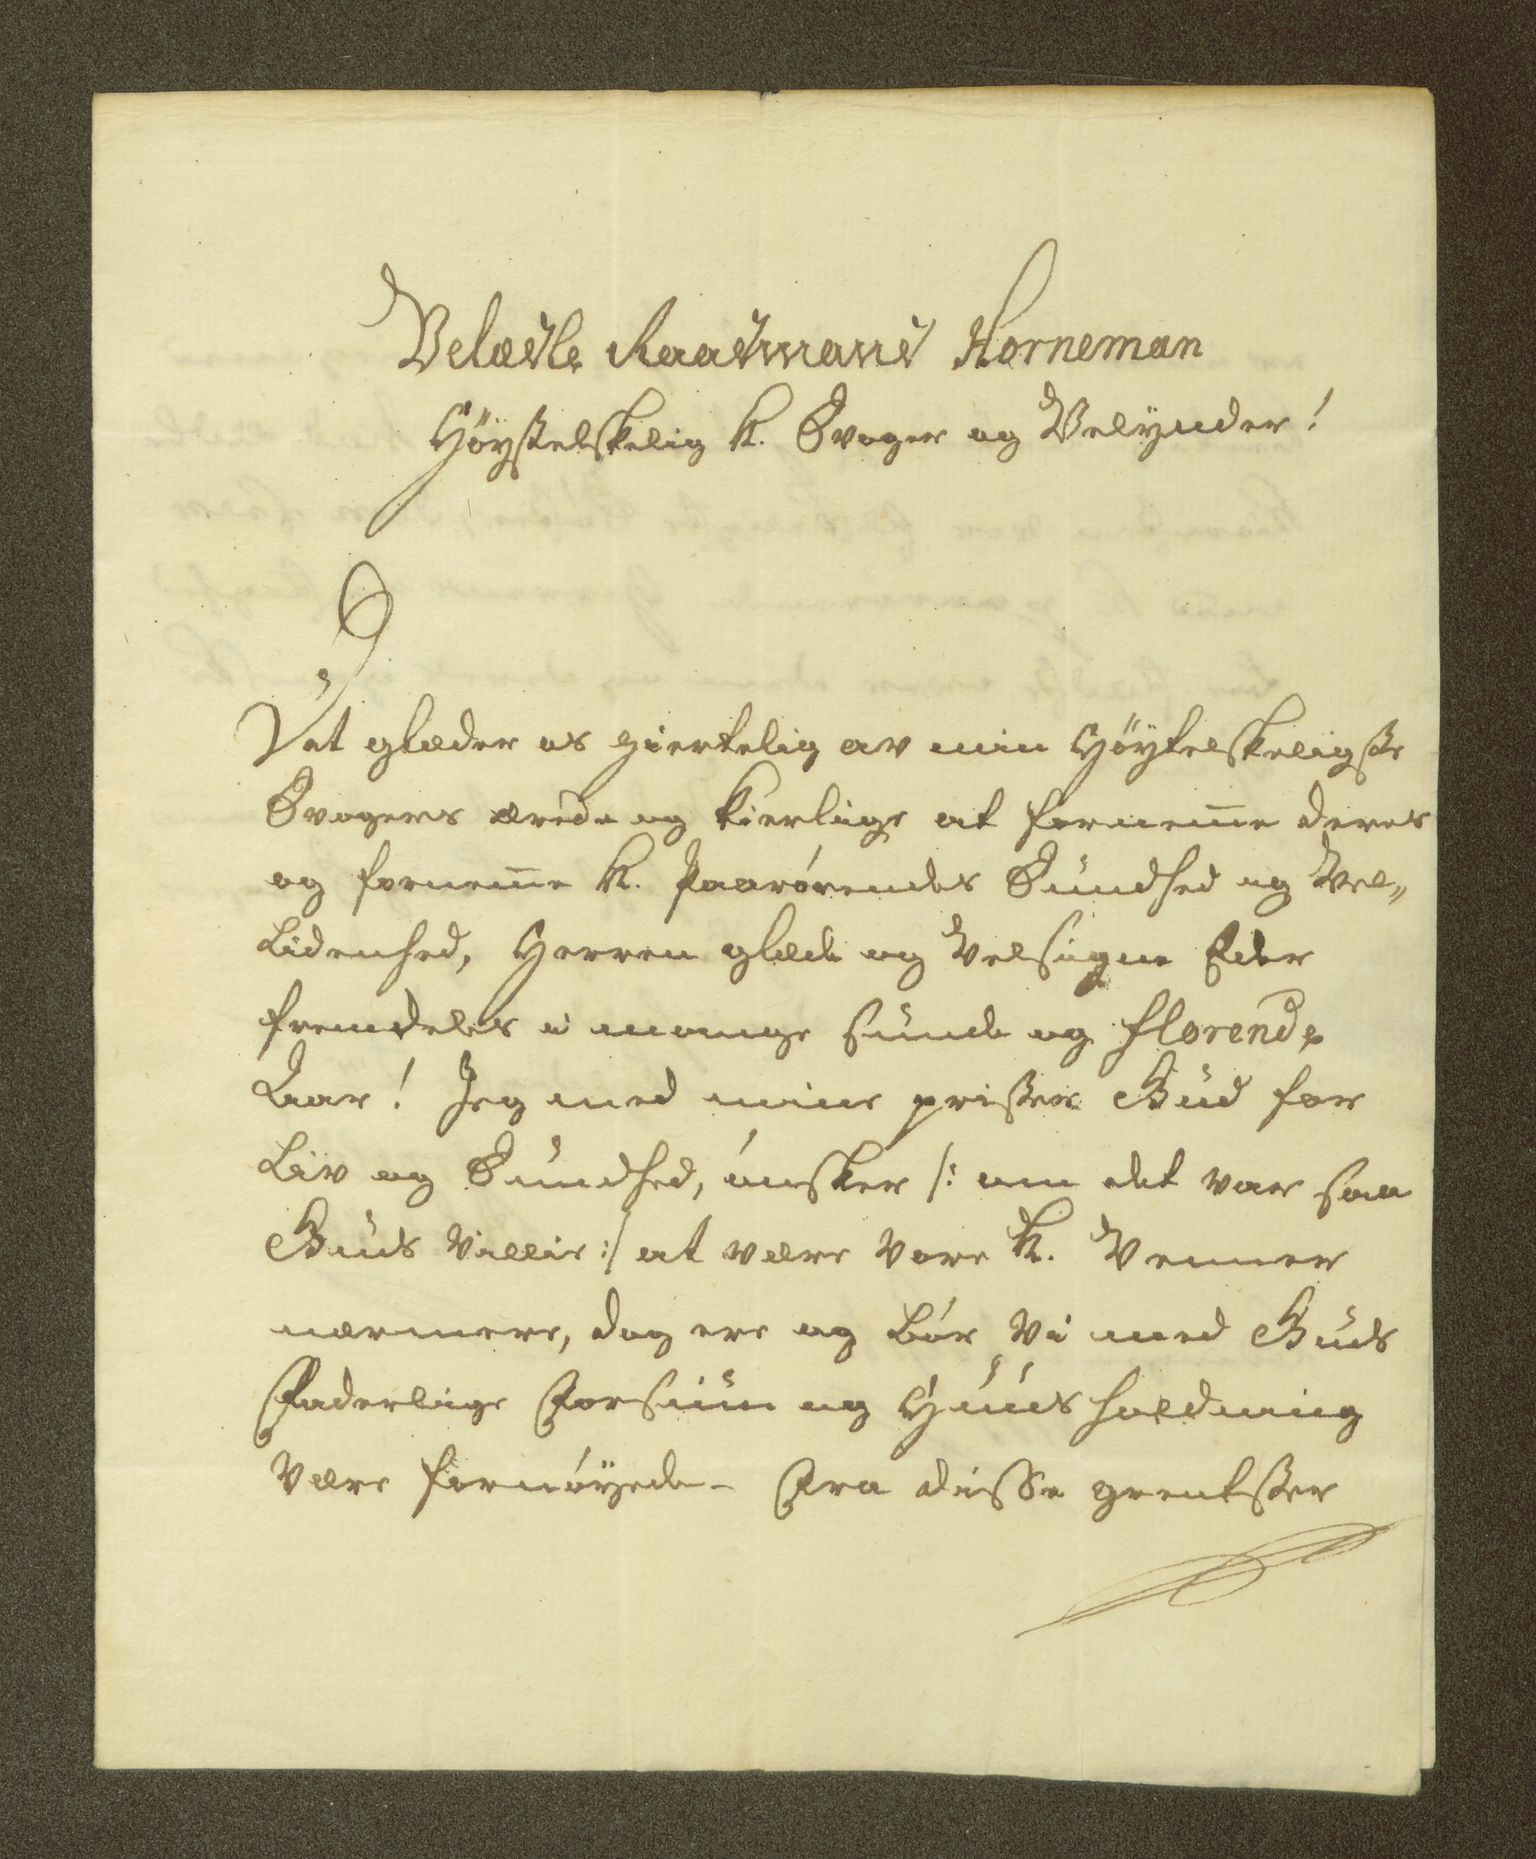 Velædle Raadmand Horneman
Høystelskelig K. Svoger og Velynder!
Det glæder os hiertelig av min Høytelskeligste
Svogers ærede og kierlige at fornemme deres
og fornemme K. Paarørendes Sundhed og Vel„
lidenhed, Herren glæde og Velsigne Eder
fremdeles i mange sunde og florende
Aar! Jeg med mine prisser Gud for
Liv og Sundhed, ønsker /: om det var saa
Guds Villie :/ at være vore K. Venner
nærmere, dog ere og bør vi med Guds
Faderlige Forsiun og Huusholdning
være fornøyede - Fra disse grentsser